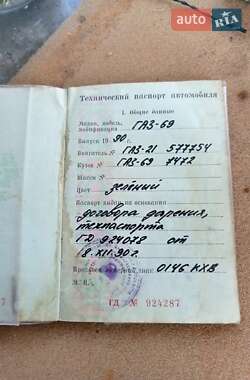 AUTO RIA
Технический паспорт автомобиля
1. Общие данные
Марка, модель,
модификация ГАЗ-69
Выпуск 19 90
Двигатель № ГАЗ-21 577754
Кузов № ГАЗ-69 7472
Шасси №
Цвет зелёный
Паспорт выдан на основании
договора дарения,
техпаспорта
ГД 924078 от
18.XII.90 г.
0146 КХВ
М.П.
ГД № 924287